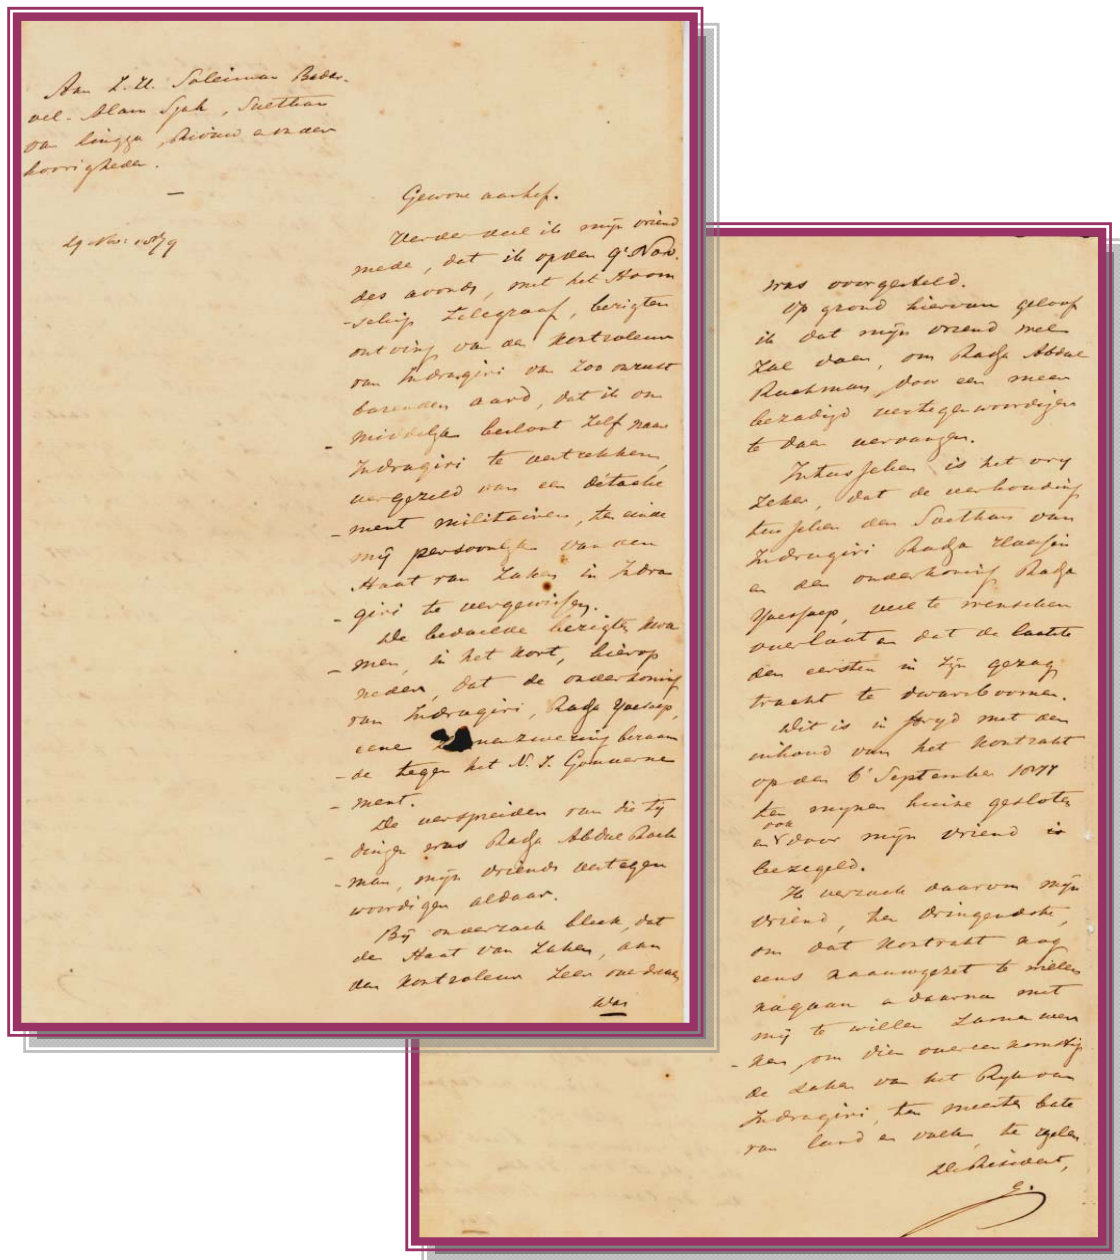 Aan Z. H. Soleiman Badar-
oel- Alam Sjah, Suethan
van Lingga, Riouw en onder
hoorigheden.
29 Nov: 1879
Gewone aanhef.
Verder deel ik mijn vriend
mede, dat ik op den 9e Nov.
des avonds, met het stoom
-schip Telegraaf, berigten
ontving van den Kontroleur
van Indragiri van zoo onrust
barenden aard, dat ik on
- middelijk besloot zelf naar
Indragiri te vertrekken,
vergezeld van een detache
- ment militairen, ten einde
mij persoonlijk van den
staat van zaken in Indra
- giri te vergewissen.
De bedoelde berigten kwa
- men, in het kort, hierop
neder, dat de onderkoning
van Indragiri, Radja Yoesoep,
eene zamenzwering beraam
- de tegen het N. I. Gouverne
- ment.
De verspreider van die tij
- dingen was Radja Abdul Rach
- man, mijn vriends vertegen
woordiger aldaar.
Bij onderzoek bleek, dat
de staat van zaken, aan
den Kontroleur zeer overdreven
was
was voorgesteld.
Op grond hiervan geloof
ik dat mijn vriend wel
zal doen, om Radja Abdul
Rachman, door een meer
bezadigd vertegenwoordiger
te doen vervangen.
Intusschen is het vrij
zeker, dat de verhouding
tusschen den Suethan van
Indragiri Radja Hassin
en den onderkoning Radja
Yoesoep, veel te wenschen
overlaat en dat de laatste
den eersten in zijn gezag
tracht te dwarsboomen.
Dit is in stryd met den
inhoud van het Kontrakt
op den 6e September 1877
ten mijnen huize gesloten
en ook door mijn vriend is
bezegeld.
Ik verzoek daarom mijn
vriend, ten dringendste,
om dat Kontrakt nog
eens naauwgezet te willen
nagaan en daarna met
mij te willen zamenwer
- ken, om dien overeenkomstig
de zaken van het Ryk van
Indragiri, ten meeste bate
van land en volk, te regelen
De Resident,